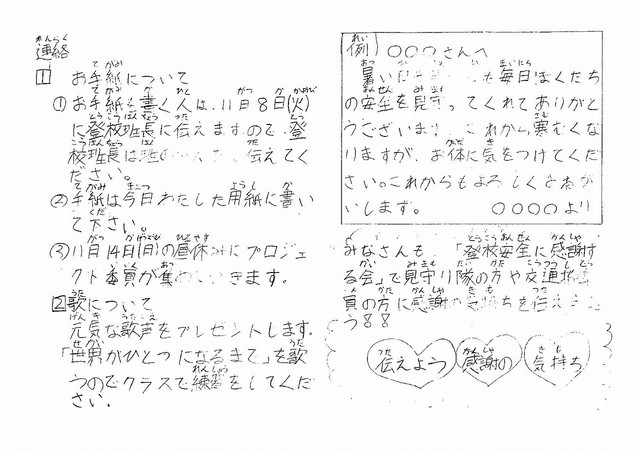 連絡
1 お手紙について
① お手紙を書く人は、11月8日(火)
に登校班長に伝えますので、登
校班長は班の
伝えてく
ださい。
② 手紙は今日わたした用紙に書い
て下さい。
③ 11月14日(日)の昼休みにプロジェ
クト委員が集めにいきます。
2 歌について
元気な歌声をプレゼントします。
「世界がひとつになるまで」を歌
うのでクラスで練習をしてくだ
さい。
例 〇〇〇さんへ
暑い日も
も毎日ぼくたち
の安全を見守ってくれてありがと
うございます。これから寒むくな
りますが、お体に気をつけてくだ
さい。これからもよろしくおねが
いします。
〇〇〇〇より
みなさんも、「登校安全に感謝す
る会」で見守り隊の方や交通指導
員の方に感謝の気持ちを伝えましょ
う
伝えよう 感謝の 気持ち